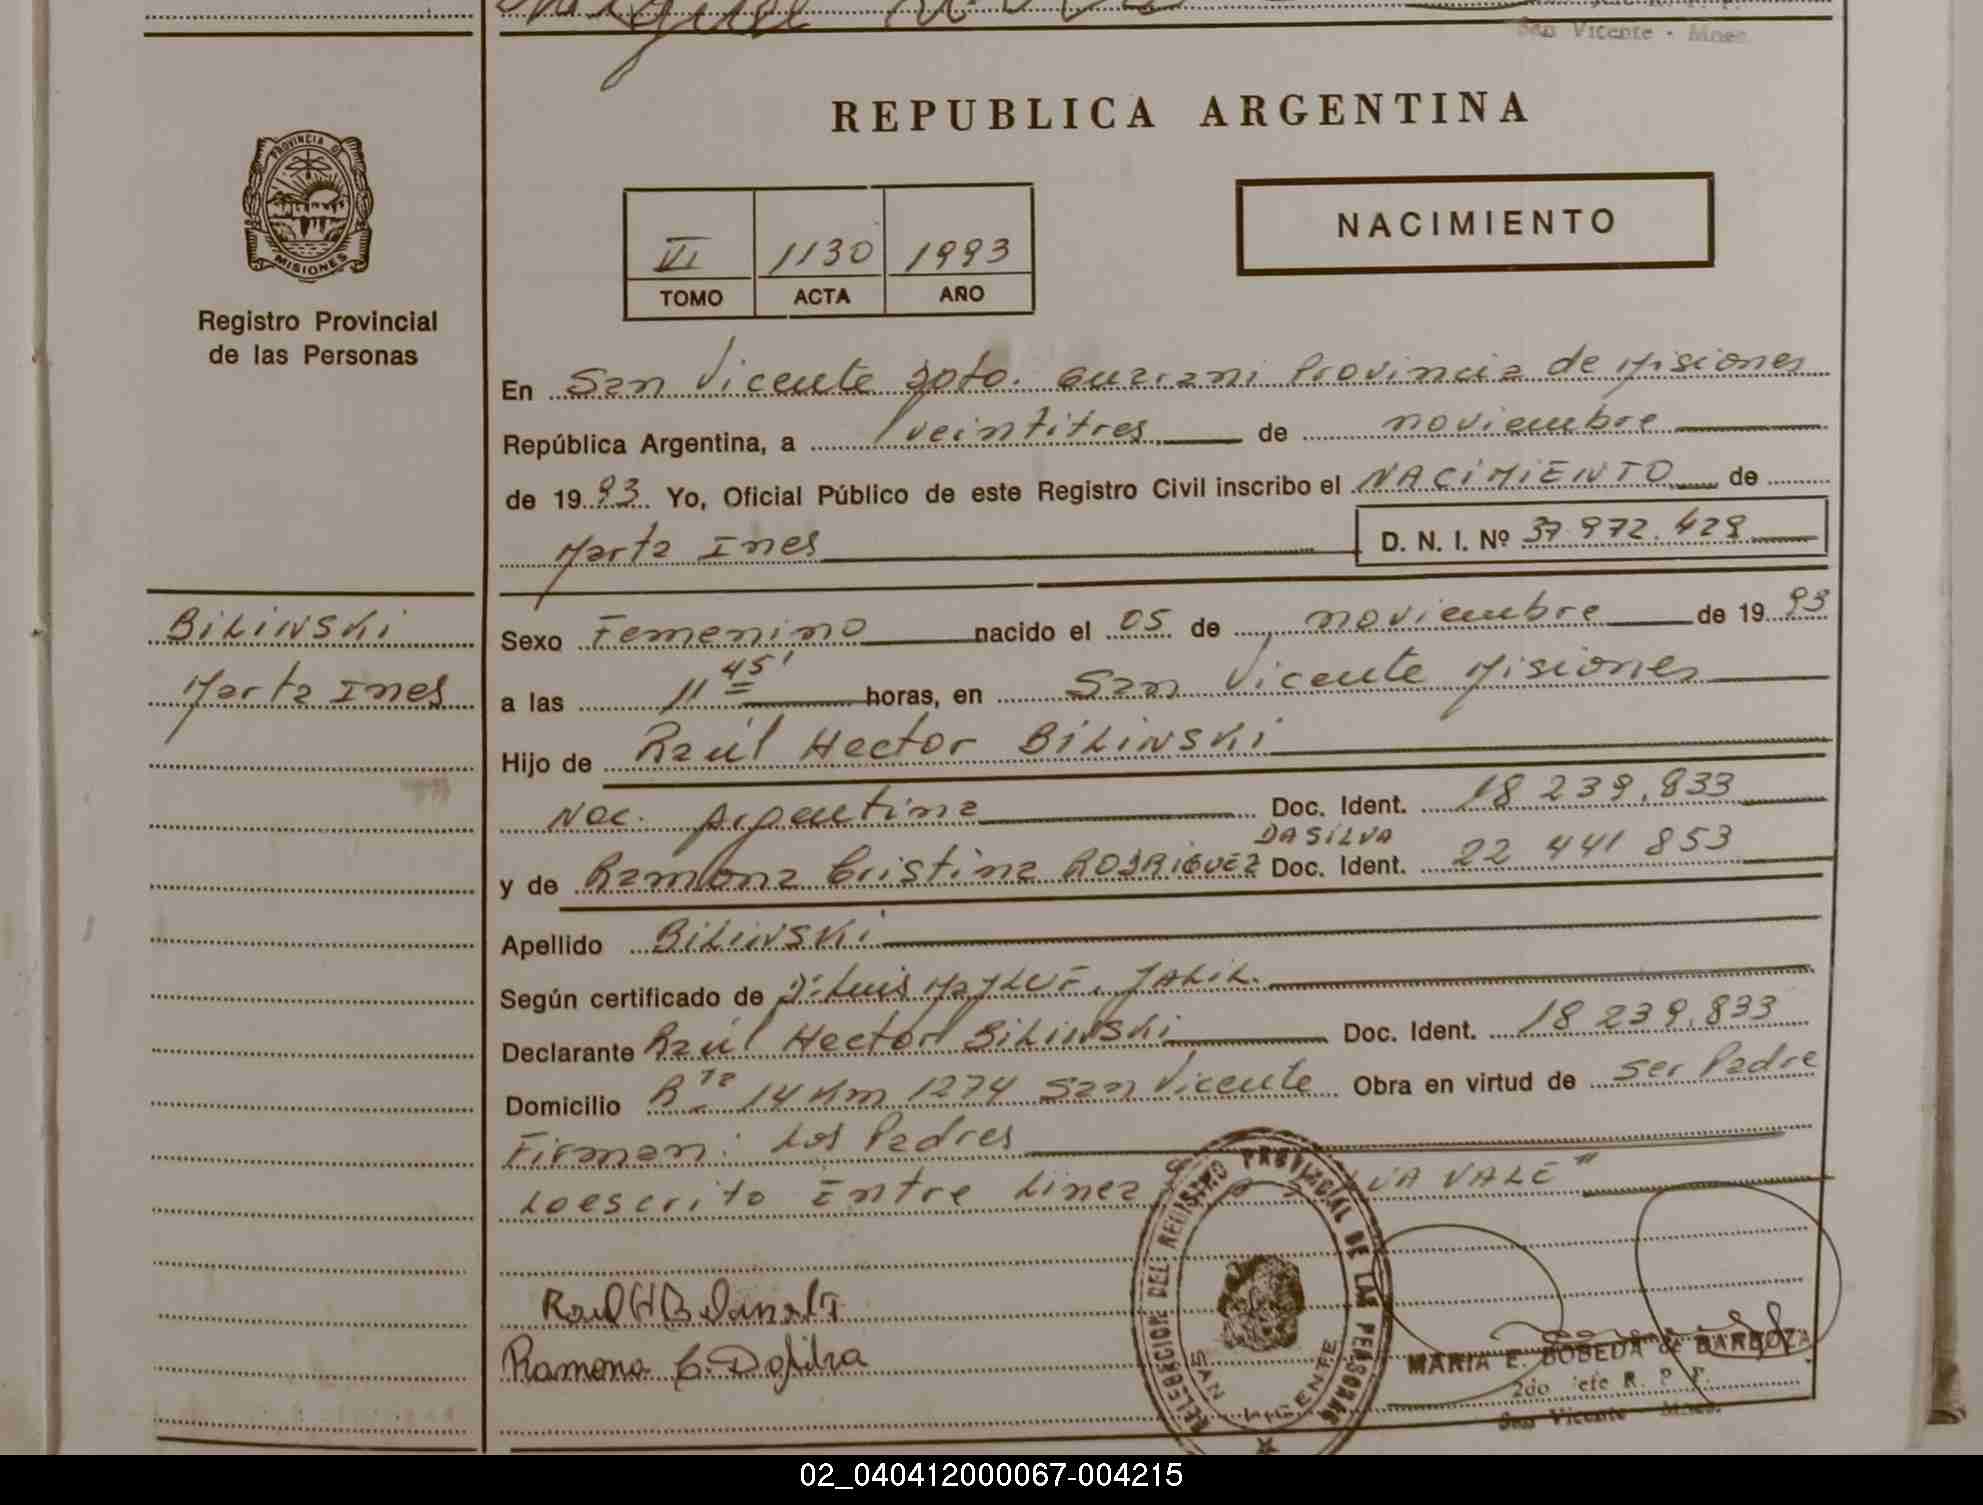 San Vicente - Mnes.
REPUBLICA ARGENTINA
PROVINCIA DE
MISIONES
Registro Provincial
de las Personas
NACIMIENTO
VI 1130 1993
TOMO ACTA AÑO
En San Vicente Dpto. Guarani Provincia de Misiones
República Argentina, a veintitres de noviembre
de 1993. Yo, Oficial Público de este Registro Civil inscribo el NACIMIENTO de
Marta Ines D. N. I. Nº 37.972.429
BILINSKI
Marta Ines
Sexo Femenino nacido el 05 de noviembre de 1993
a las 11 45' horas, en San Vicente Misiones
Hijo de Raúl Hector BILINSKI
Nac. Argentina Doc. Ident. 18.239.833
DASILVA
y de Ramona Cristina RODRIGUEZ Doc. Ident. 22 441 853
Apellido BILINSKI
Según certificado de Dr. Luis JALIL.
Declarante Raúl Hector BILINSKI Doc. Ident. 18.239.833
Domicilio Rta 14 Km 1274 San Vicente Obra en virtud de ser Padre
Firman: Los Padres
Lo escrito Entre Linea VALE"
Ramona C. Dasilva
DELEGACION DEL REGISTRO PROVINCIAL DE LAS PERSONAS
SAN VICENTE
MARIA E. BOBEDA de BARBOZA
2do Jefe R. P. P.
San Vicente - Mnes.
02_040412000067-004215